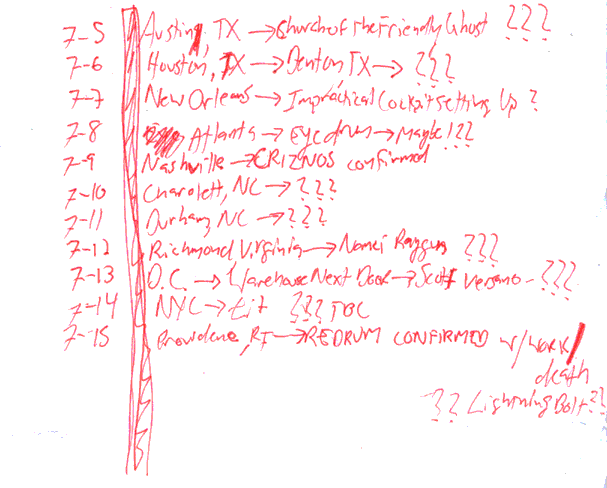 7-5 Austin, TX → Church of The Friendly Ghost ???
7-6 Houston, TX → Denton, TX → ???
7-7 New Orleans → Impractical Cockpit Setting Up ?
7-8 Atlanta → Eyedrum → Maybe ???
7-9 Nashville → confirmed
7-10 Charolett, NC → ???
7-11 Durham, NC → ???
7-12 Richmond, Virginia → Raygun ???
7-13 D.C. → Warehouse Next Door → Scott Versano - ???
7-14 NYC → ??? TBC
7-15 Providence, RI → REDRUM CONFIRMED w/ WORK/
death
?? Lightning Bolt ??